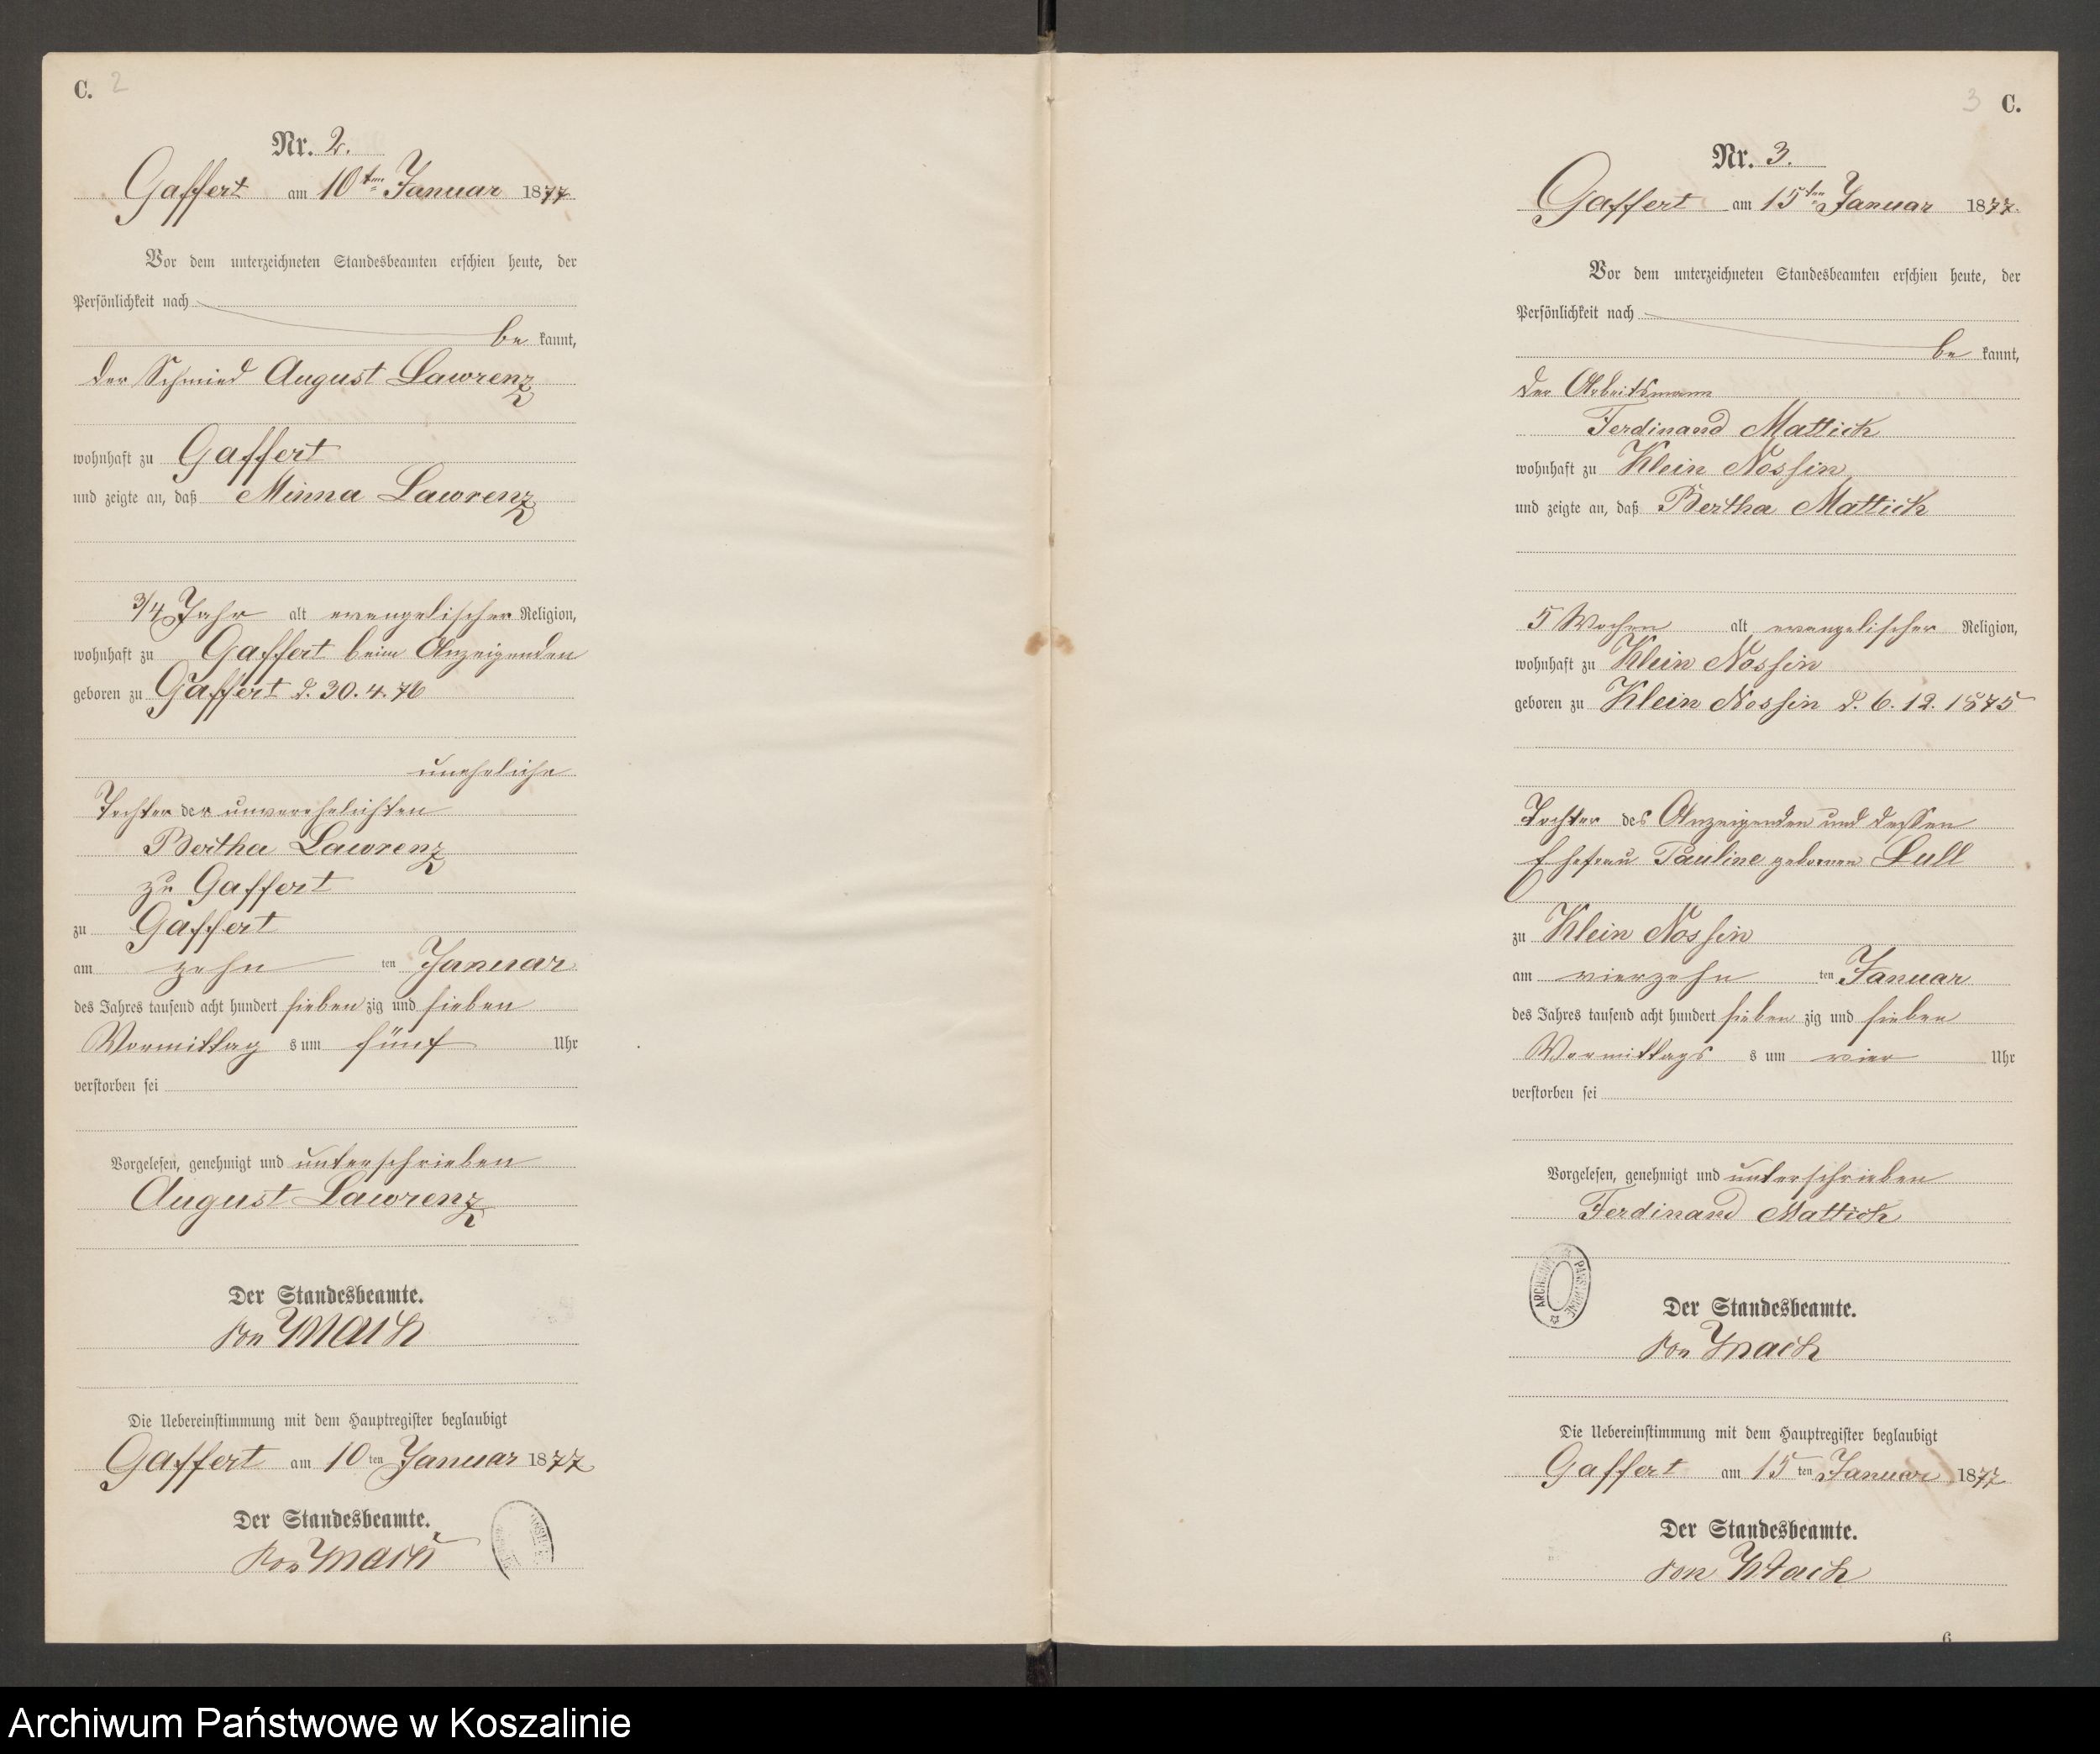 C. 2
Nr. 2.
Gaffert am 10ten Januar 1877
Vor dem unterzeichneten Standesbeamten erschien heute, der
Persönlichkeit nach
be kannt,
der Schmied August Lawrenz
wohnhaft zu Gaffert
und zeigte an, daß Minna Lawrenz
3/4 Jahr alt evangelischer Religion,
wohnhaft zu Gaffert beim Anzeigenden
geboren zu Gaffert d. 30. 4. 76
uneheliche
Tochter der unverehelichten
Bertha Lawrenz
zu Gaffert
zu Gaffert
am zehn ten Januar
des Jahres tausend acht hundert sieben zig und sieben
Vormittag s um fünf Uhr
verstorben sei
Vorgelesen, genehmigt und unterschrieben
August Lawrenz
Der Standesbeamte.
von
Die Uebereinstimmung mit dem Hauptregister beglaubigt
Gaffert am 10 ten Januar 1877
Der Standesbeamte.
von
3 C.
Nr. 3.
Gaffert am 15ten Januar 1877.
Vor dem unterzeichneten Standesbeamten erschien heute, der
Persönlichkeit nach
be kannt,
der Arbeitsmann
Ferdinand Mattick
wohnhaft zu Klein Nossin
und zeigte an, daß Bertha Mattick
5 Wochen alt evangelischer Religion,
wohnhaft zu Klein Nossin
geboren zu Klein Nossin d. 6. 12. 1875
Tochter des Anzeigenden und dessen
Ehefrau Pauline gebornen Lull
zu Klein Nossin
am vierzehn ten Januar
des Jahres tausend acht hundert sieben zig und sieben
Vormittags s um vier Uhr
verstorben sei
Vorgelesen, genehmigt und unterschrieben
Ferdinand Mattick
ARCHIWUM PAŃSTWOWE
Der Standesbeamte.
von
Die Uebereinstimmung mit dem Hauptregister beglaubigt
Gaffert am 15 ten Januar 1877
Der Standesbeamte.
von
6
Archiwum Państwowe w Koszalinie